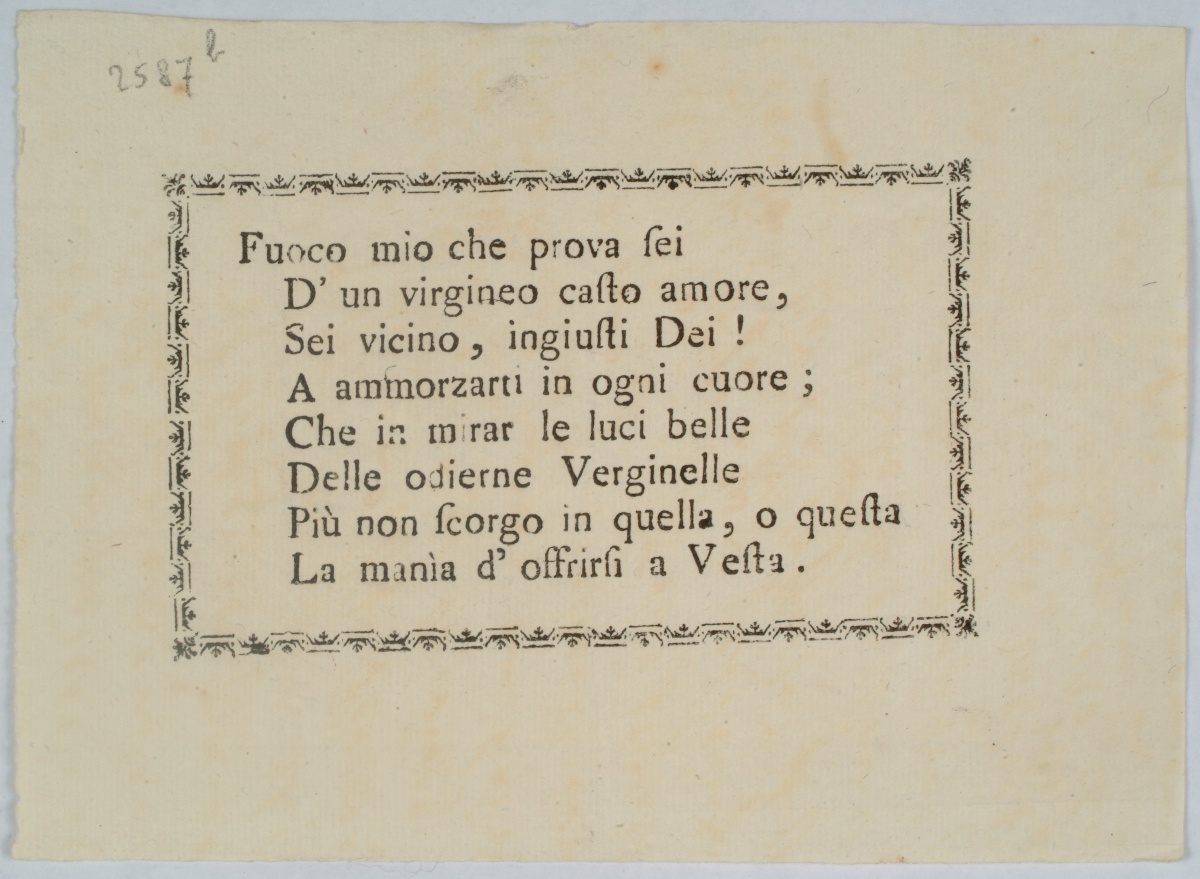 2587 b
Fuoco mio che prova ſei
D' un virgineo caſto amore,
Sei vicino, ingiuſti Dei !
A ammorzarti in ogni cuore ;
Che in mirar le luci belle
Delle odierne Verginelle
Più non ſcorgo in quella, o queſta
La manìa d' offrirſi a Veſta.